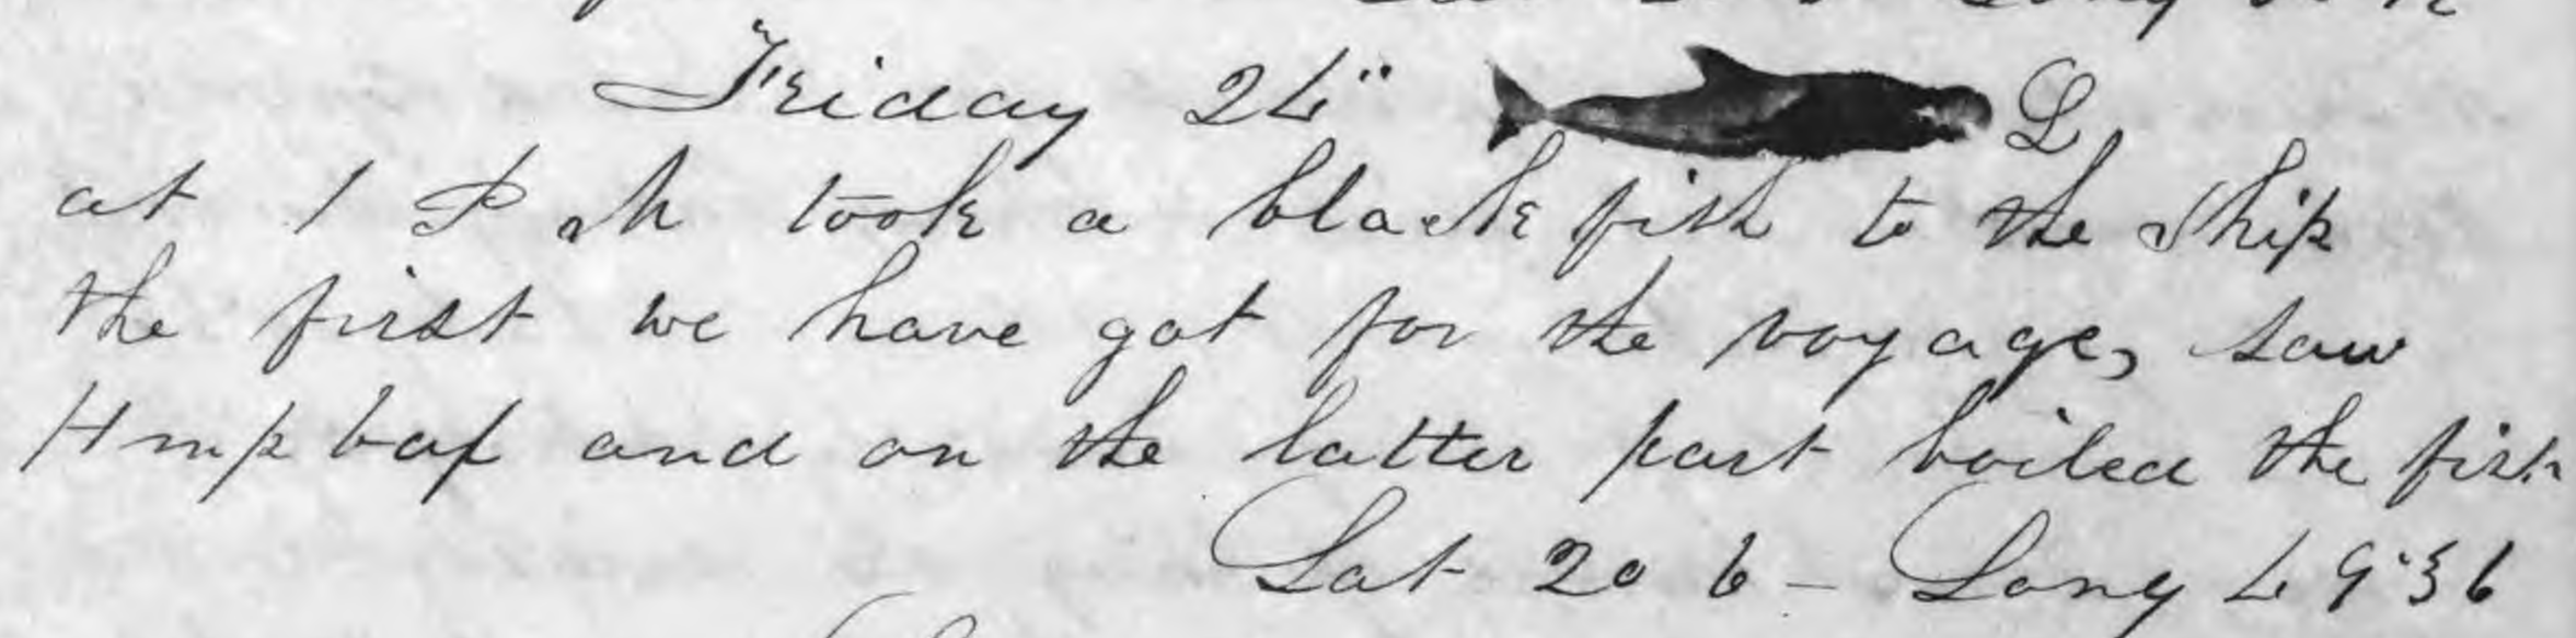 Friday 24" L
at 1 P M took a black fish to the Ship
the first we have got for the voyage, saw
and on the latter part boiled the fish
Lat 20 6 – Long 49·36